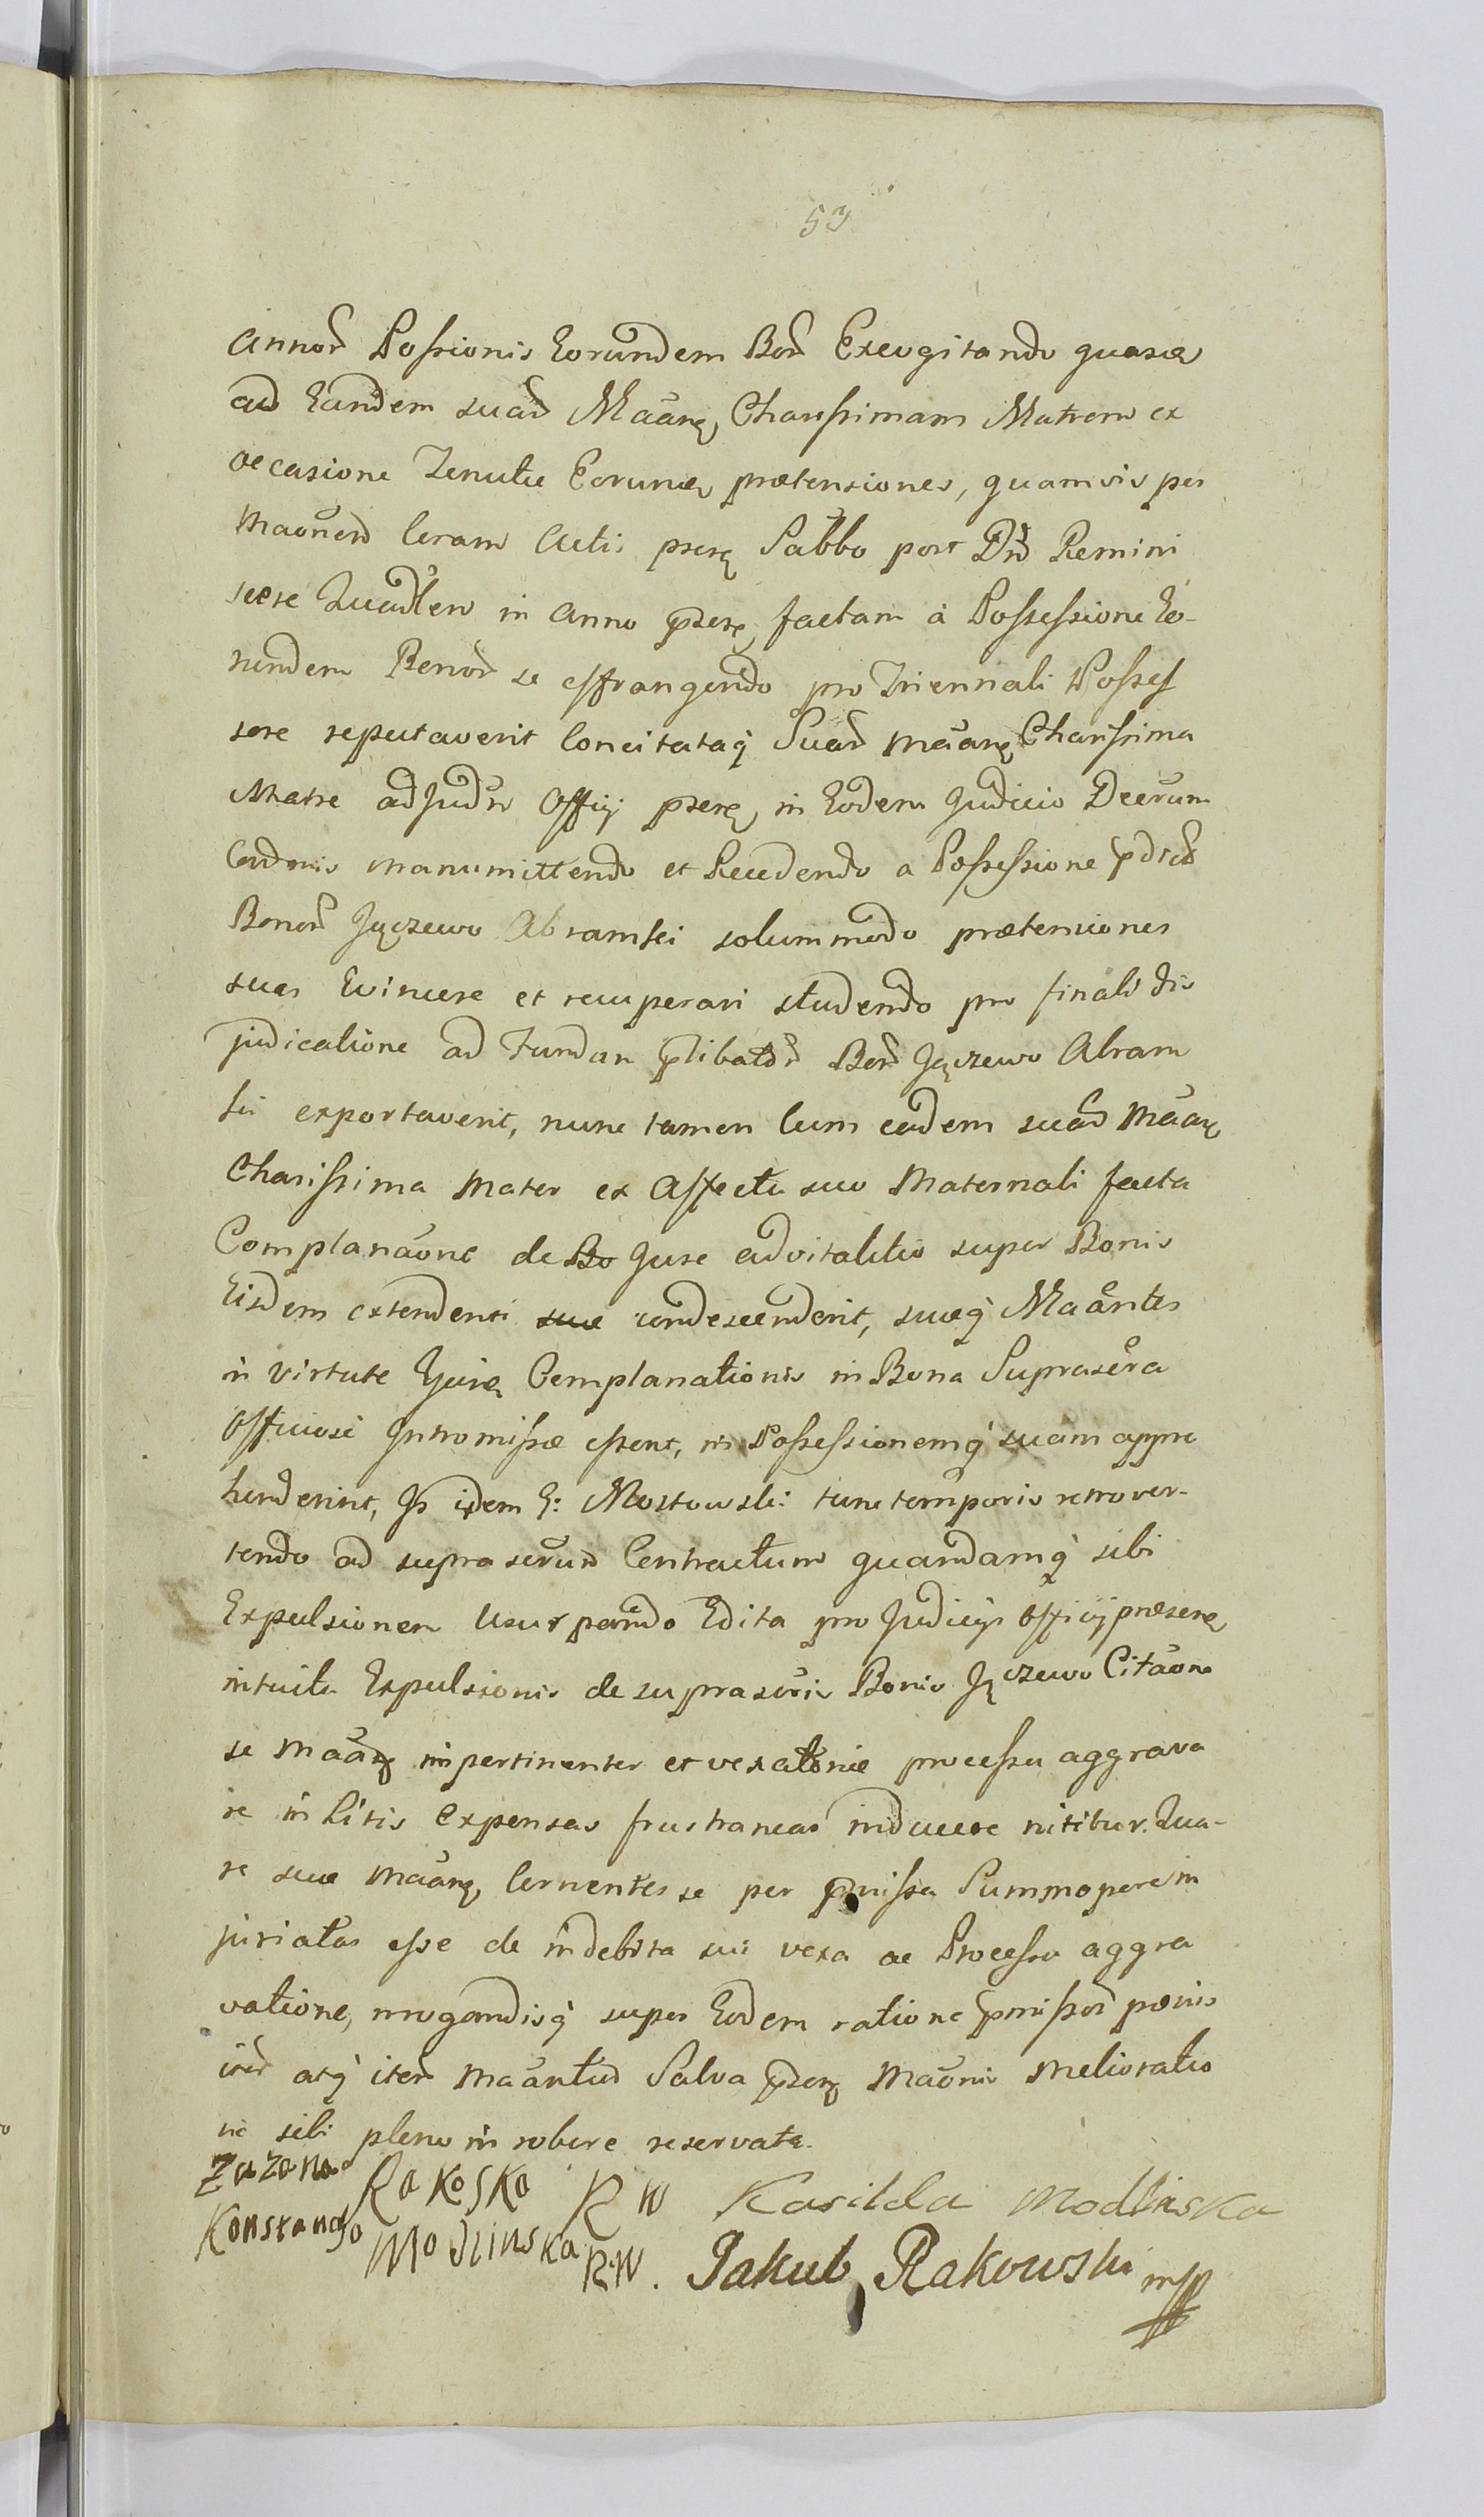 53
Annor Possionis Eorundem Bor Excogitando quasve
ad Eandem suar Maārę Charissimam Matrem ex
occasione Tenutæ Eorumve prætensiones, quamvis per
Maōnem Coram Actis præsę Sabbo post Dnī Remini
scere Quadlem in Anno præsę factam à Possessione Eo-
rundem Bonor se effrangendo pro Triennali Posses
sore reputaverit Concitataq Suar Māarę Charissima
Matre ad Judm Officij præsę in Eodem Judicio Decrum
Condnis manumittendo et Recedendo a Possessione pdictr
Bonor Jączewo Abramki solummodo prætensiones
suas Evincere et recuperari studendo pro finali dis
judicatione ad Fundum plibator Bor Jączewo Abram
ki exportaverit, nunc tamen Cum eadem suar Māarę
Charissima Mater ex Affectu suo Maternali facta
Complanaōne de Bo Jure advitalitio super Bonis
Eisdem extendenti suæ condescenderit, suæq Maāntes
in virtute hujusę Complanationis in Bona Suprascra
Officiose Intromissæ essent, in Possessionemq suam appre
henderint, Is idem G: Mostowski tunc temporis retrover-
tendo ad suprascrum Contractum quandamq sibi
Expulsionem Usurpando Edita pro Judicijs Officij præsenę
intuitu Expulsionis de suprascris Bonis Jączewo Citaōne
se Māarę impertinenter et vexatorie processu aggrava
re in Litis expensas frustraneas inducere nititur. Qua-
re suæ Māarę Cernentes se per præmissa Summopere in
juriatas esse de indebita sui vexa ac Processu aggra
vatione, irrogandisq super Eodem ratione præmissor pœnis
iter atq iter Maāntur Salva præsę Maōnis Melioratio
ne sibi pleno in robore reservata.
Zuzana Rakoska R W Kasilda Modlinska
Konstancyo Modlinska R.W. Jakub Rakowski mp